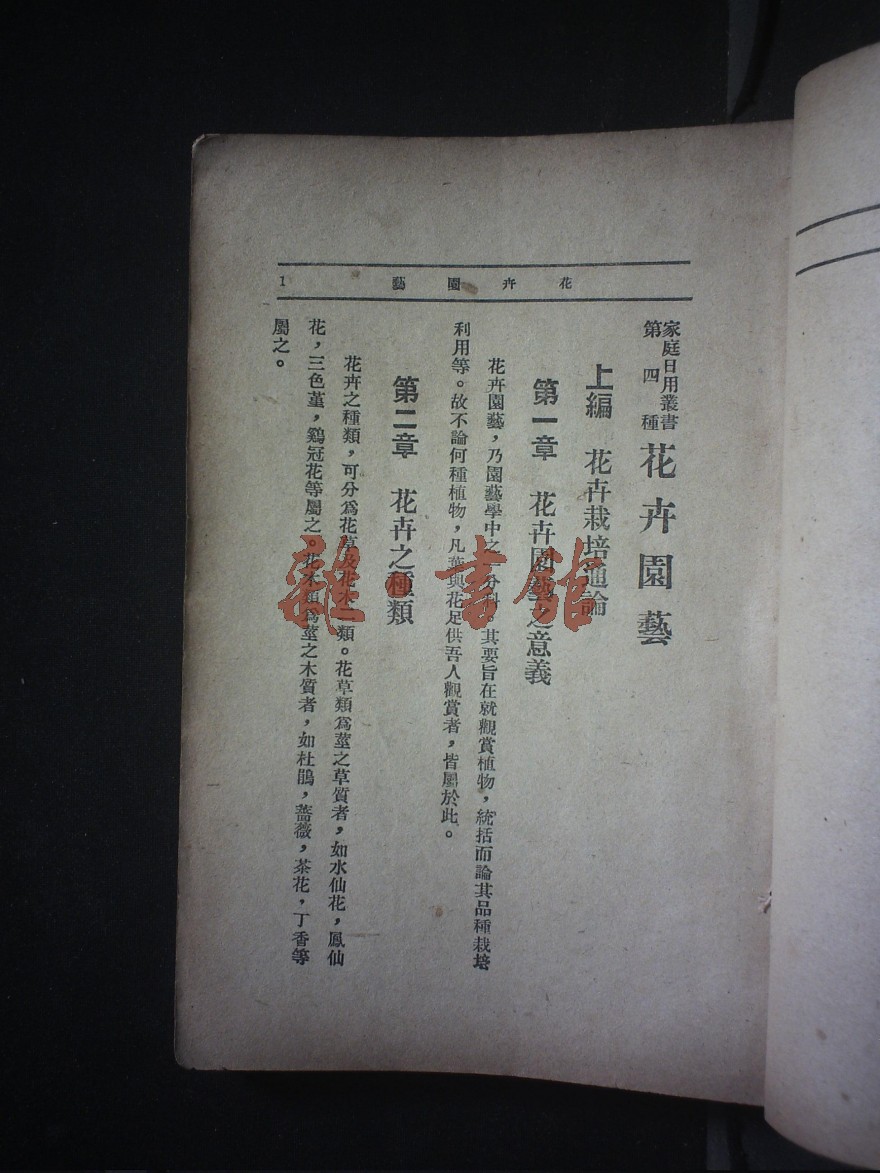 花卉園藝
1
家庭日用叢書
第四種
花卉園藝
上編　花卉栽培通論
第一章　花卉園藝之意義
花卉園藝，乃園藝學中之一分科。其要旨在就觀賞植物，統括而論其品種栽培
利用等。故不論何種植物，凡葉與花足供吾人觀賞者，皆屬於此。
第二章　花卉之種類
花卉之種類，可分爲花草及花木二類。花草類爲莖之草質者，如水仙花，鳳仙
花，三色堇，鷄冠花等屬之。花木類爲莖之木質者，如杜鵑，薔薇，茶花，丁香等
屬之。
雜·書館